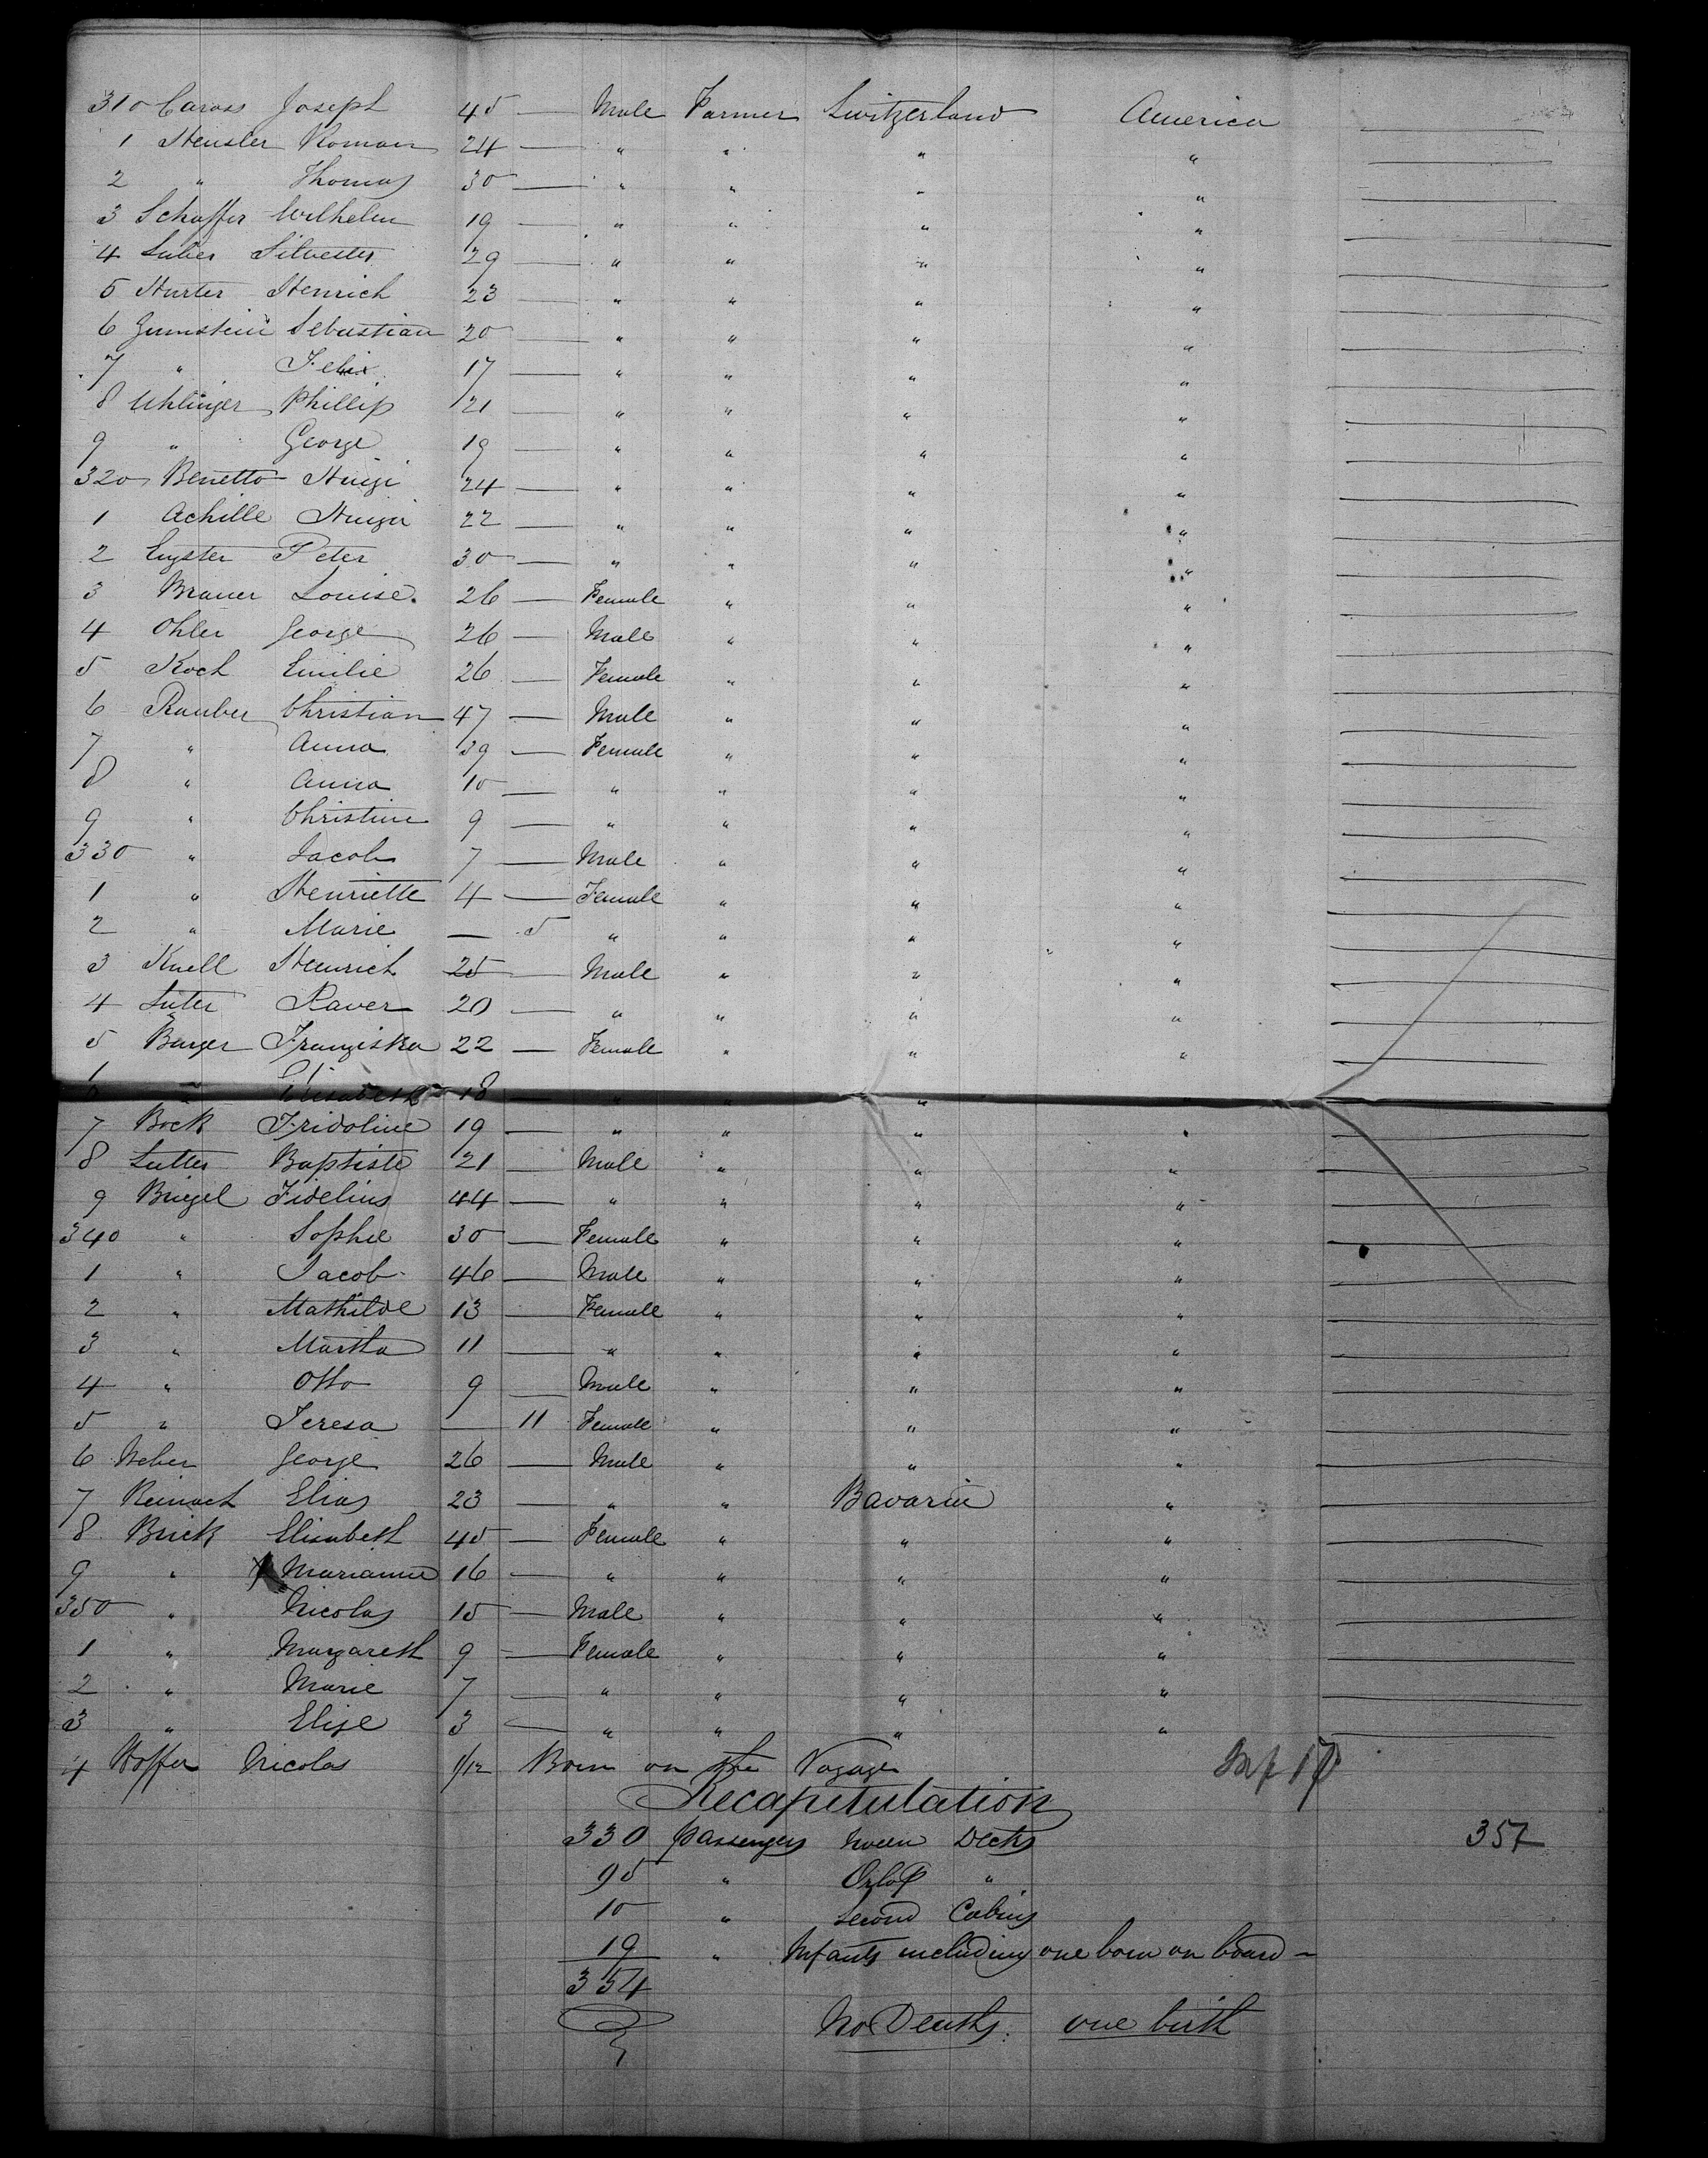 310 Caross Joseph 45 — Male Farmer Switzerland America
1 Heusler Roman 24 — " " " "
2 " Thomas 30 — " " " "
3 Schaffer Wilhelm 19 — " " " "
4 Suber Silvester 29 — " " " "
5 Hurter Henrich 23 — " " " "
6 Zumstein Sebastian 20 — " " " "
7 " Felix 17 — " " " "
8 Uhlinger Phillip 21 — " " " "
9 " George 19 — " " " "
320 Benetto Huigi 24 — " " " "
1 Achille Huigi 22 — " " " "
2 Eugster Peter 30 — " " " "
3 Brauer Louise 26 — Female " " "
4 Ohler George 26 — Male " " "
5 Koch Emilie 26 — Female " " "
6 Rauber Christian 47 — Male " " "
7 " Anna 39 — Female " " "
8 " Anna 10 — " " " "
9 " Christine 9 — " " " "
330 " Jacob 7 — Male " " "
1 " Henriette 4 — Female " " "
2 " Marie — 5 " " " "
3 Knell Heinrich 25 — Male " " "
4 Suter Xaver 20 — " " " "
5 Burger Franziska 22 — Female " " "
6 " Elisabeth 18 — " " "
7 Bock Fridoline 19 — " " " "
8 Sutter Baptiste 21 — Male " " "
9 Briegel Fidelius 44 — " " " "
340 " Sophie 30 — Female " " "
1 " Jacob 46 — Male " " "
2 " Mathilde 13 — Female " " "
3 " Martha 11 — " " " "
4 " Otto 9 — Male " " "
5 " Teresa — 11 Female " " "
6 Weber George 26 — Male " " "
7 Reinach Elias 23 — " " Bavaria "
8 Brick Elisabeth 45 — Female " " "
9 " X Marianne 16 — " " " "
350 " Nicolas 15 — Male " " "
1 " Margareth 9 — Female " " "
2 " Marie 7 — " " " "
3 " Elise 3 — " " " "
4 Hoffer Nicolas 1/12 Born on the Voyage Inf 17
Recapitulation
330 passengers tween Decks 357
95 " Orlop "
10 " Second Cabins
19 " Infants including one born on board —
354
No Deaths. one birth